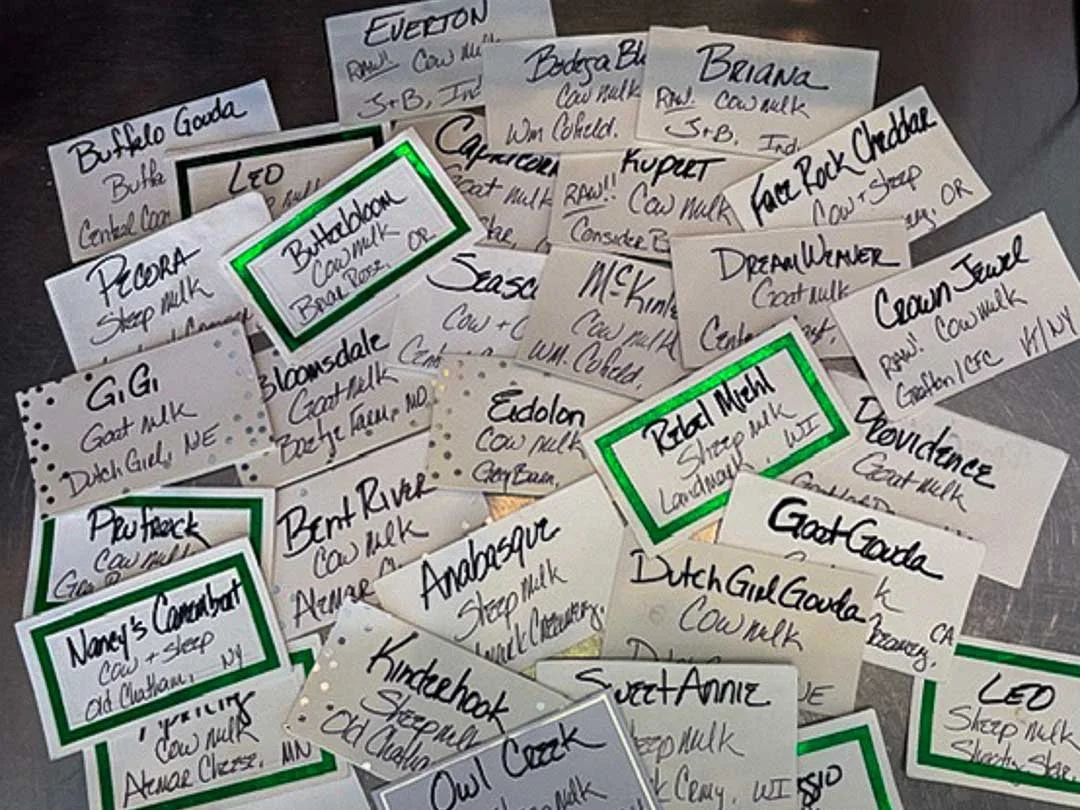 EVERTON
RAW! Cow Milk
J+B, Ind
Bodega Bl
Cow Milk
Wm Cofield.
BRIANA
RAW. Cow Milk
J+B. Ind.
Buffalo Gouda
Central Coa
LEO
Capricorn
Goat Milk
RUPERT
RAW!! Cow Milk
Consider B
Face Rock Cheddar
Cow + Sheep
OR
Butterbloom
Cow Milk
Briar Rose, OR.
PECORA
Sheep Milk
Seasc
Cow + G
McKinl
Cow Milk
Wm. Cofield,
DREAM WEAVER
Goat Milk
Crown Jewel
RAW! Cow Milk
Grafton/CFC VT/NY
GiGi
Goat Milk
Dutch Girl, NE
Bloomsdale
Goat Milk
Baetje Farm, MO
Eidolon
Cow Milk
Grey Barn,
Rebel Miehl
Sheep Milk
Landmark, WI
Providence
Goat Milk
Prufrock
Cow Milk
BENT RIVER
Cow Milk
Alemar
Anabasque
Sheep Milk
Creamery,
Goat Gouda
Creamery, CA
Dutch Girl Gouda
Cow Milk
NE
Nancy's Camembert
Cow + Sheep
Old Chatham, NY
Cow Milk
Alemar Cheese, MN
Kinderhook
Sheep Milk
Old Chatha
SWEET ANNIE
eep Milk
k Crmy, WI
OWL CREEK
LEO
Sheep Milk
Shooting Star,